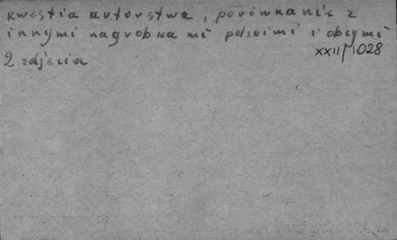 kwestia autorstwa, porównanie z
innymi nagrobkami polskimi i obcymi
XXII/1028
2 zdjęcia